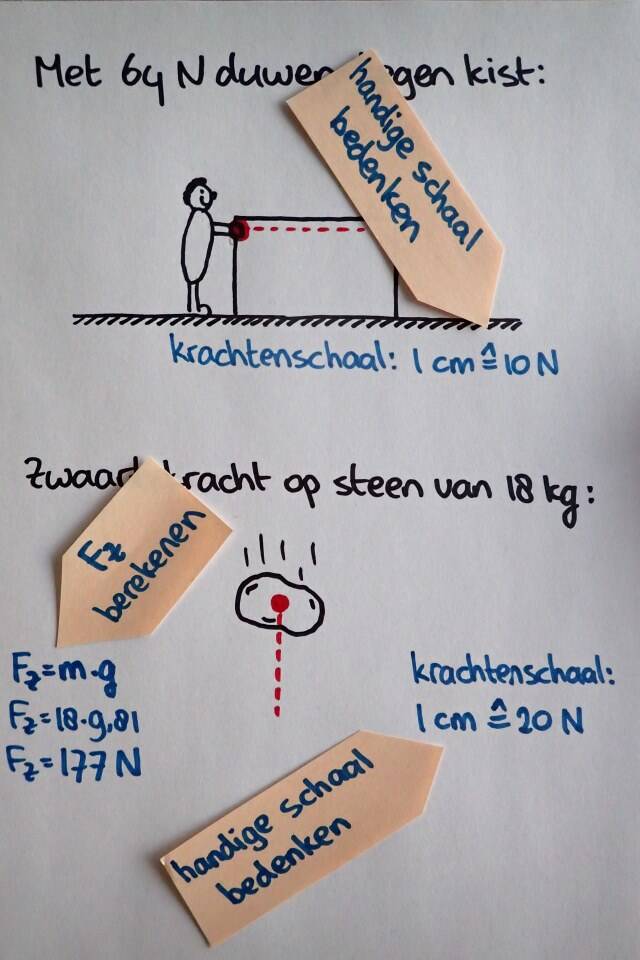 Met 64 N duwen tegen kist:
handige schaal
bedenken
krachtenschaal: 1 cm ≙ 10 N
Zwaartekracht op steen van 18 kg:
Fz
berekenen
Fz = m · g
Fz = 18 · 9,81
Fz = 177 N
krachtenschaal:
1 cm ≙ 20 N
handige schaal
bedenken